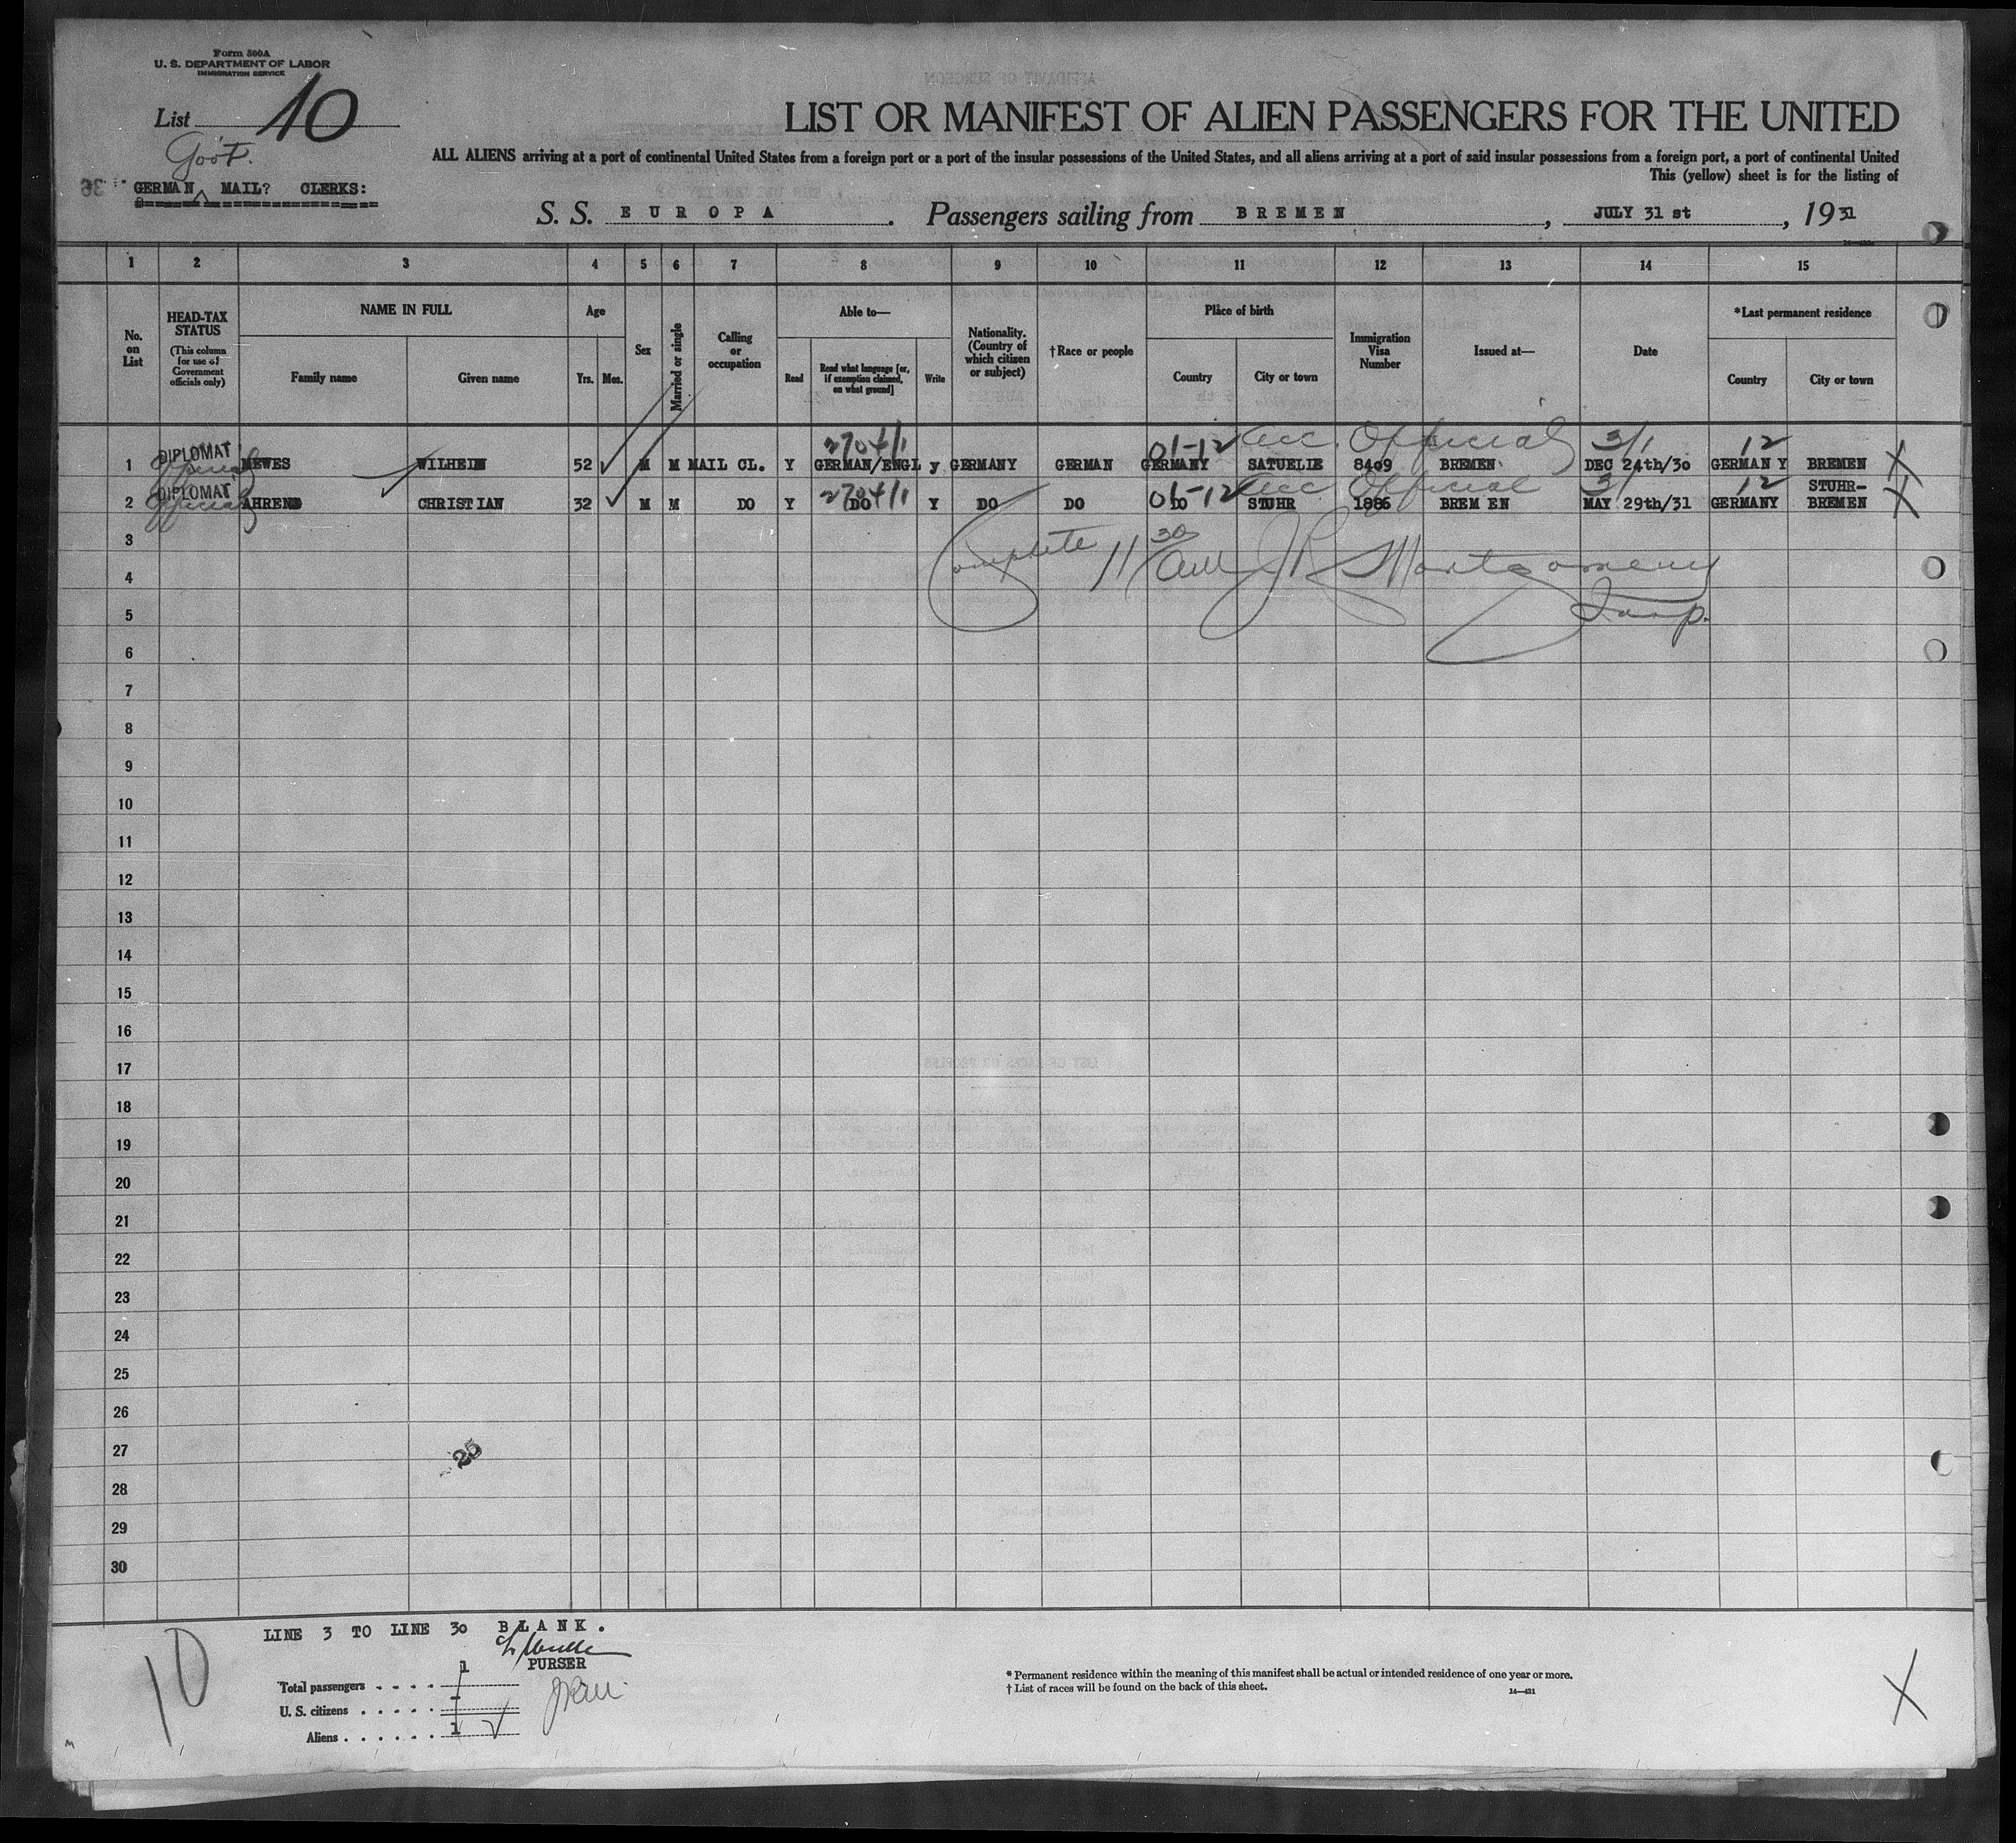 Form 500A
U. S. DEPARTMENT OF LABOR
IMMIGRATION SERVICE
List 10
Gov't.
GERMAN MAIL? CLERKS:
LIST OR MANIFEST OF ALIEN PASSENGERS FOR THE UNITED
ALL ALIENS arriving at a port of continental United States from a foreign port or a port of the insular possessions of the United States, and all aliens arriving at a port of said insular possessions from a foreign port, a port of continental United
This (yellow) sheet is for the listing of
S. S. EUROPA. Passengers sailing from BREMEN, JULY 31 st, 1931
1 2 3 4 5 6 7 8 9 10 11 12 13 14 15
No. on List
HEAD-TAX STATUS
(This column for use of Government officials only)
NAME IN FULL
Family name Given name
Age
Yrs. Mos.
Sex
Married or single
Calling or occupation
Able to—
Read Read what language [or, if exemption claimed, on what ground] Write
Nationality. (Country of which citizen or subject)
† Race or people
Place of birth
Country City or town
Immigration Visa Number
Issued at—
Date
*Last permanent residence
Country City or town
270411 01-12 Official 3/1 12
1 DIPLOMAT Official MEWES WILHELM 52 M M MAIL CL. Y GERMAN/ENGL y GERMANY GERMAN GERMANY SATUELIE 8409 BREMEN DEC 24th/30 GERMAN Y BREMEN X
270411 01-12 Official 3/ 12
2 DIPLOMAT Official AHREND CHRISTIAN 32 M M DO Y DO Y DO DO DO STUHR 1886 BREM EN MAY 29th/31 GERMANY STUHR-BREMEN X
3
Complete 11 30 AM J R Montgomery
4
5
Insp.
6
7
8
9
10
11
12
13
14
15
16
17
18
19
20
21
22
23
24
25
26
27
25
28
29
30
LINE 3 TO LINE 30 BLANK.
PURSER
10
Total passengers . . . . 1
U. S. citizens . . . . . -
Aliens . . . . . . 1
* Permanent residence within the meaning of this manifest shall be actual or intended residence of one year or more.
† List of races will be found on the back of this sheet.
14—431
X